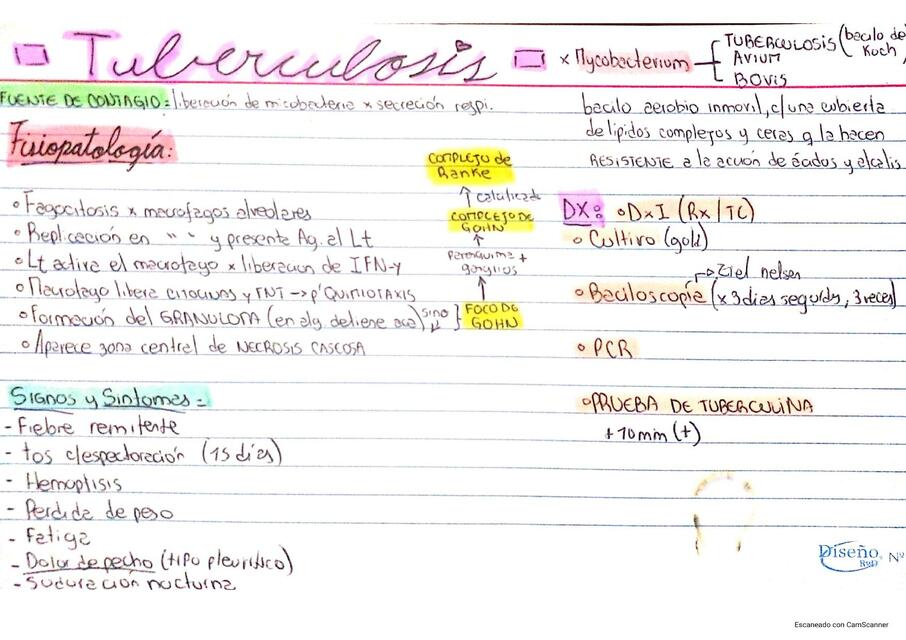 Tuberculosis
x Mycobacterium
TUBERCULOSIS (bacilo de Koch)
AVIUM
BOVIS
FUENTE DE CONTAGIO: liberación de micobacteria x secreción respi.
bacilo aerobio inmovil, c/una cubierta
de lipidos complejos y ceras q la hacen
RESISTENTE a la acción de ácidos y alcalis.
Fisiopatología:
° Fagocitosis x macrofagos alveolares
° Replicación en " " y presente Ag. al Lt
° Lt activa el macrofago x liberacion de IFN-γ
° Macrofago libera citocinas y TNT → p' QUIMIOTAXIS
° Formación del GRANULOMA (en alg detiene aca) sino ↓
° Aparece zona central de NECROSIS CASCOSA
COMPLEJO de
Ranke
↑ calcificado
COMPLEJO DE
GOHN
↑
Parenquima +
ganglios
↑
FOCO DE
GOHN
DX: ° DxI (Rx/TC)
° Cultivo (gold)
→ Ziel nelsen
° Baciloscopía (x 3 dias seguids, 3 veces)
° PCR
° PRUEBA DE TUBERCULINA
+10mm (+)
Signos y Sintomas =
- Fiebre remitente
- tos c/espectoración (15 días)
- Hemoptisis
- Perdida de peso
- Fatiga
- Dolor de pecho (tipo pleurítico)
- Suduración nocturna
Diseño N°
R&D
Escaneado con CamScanner